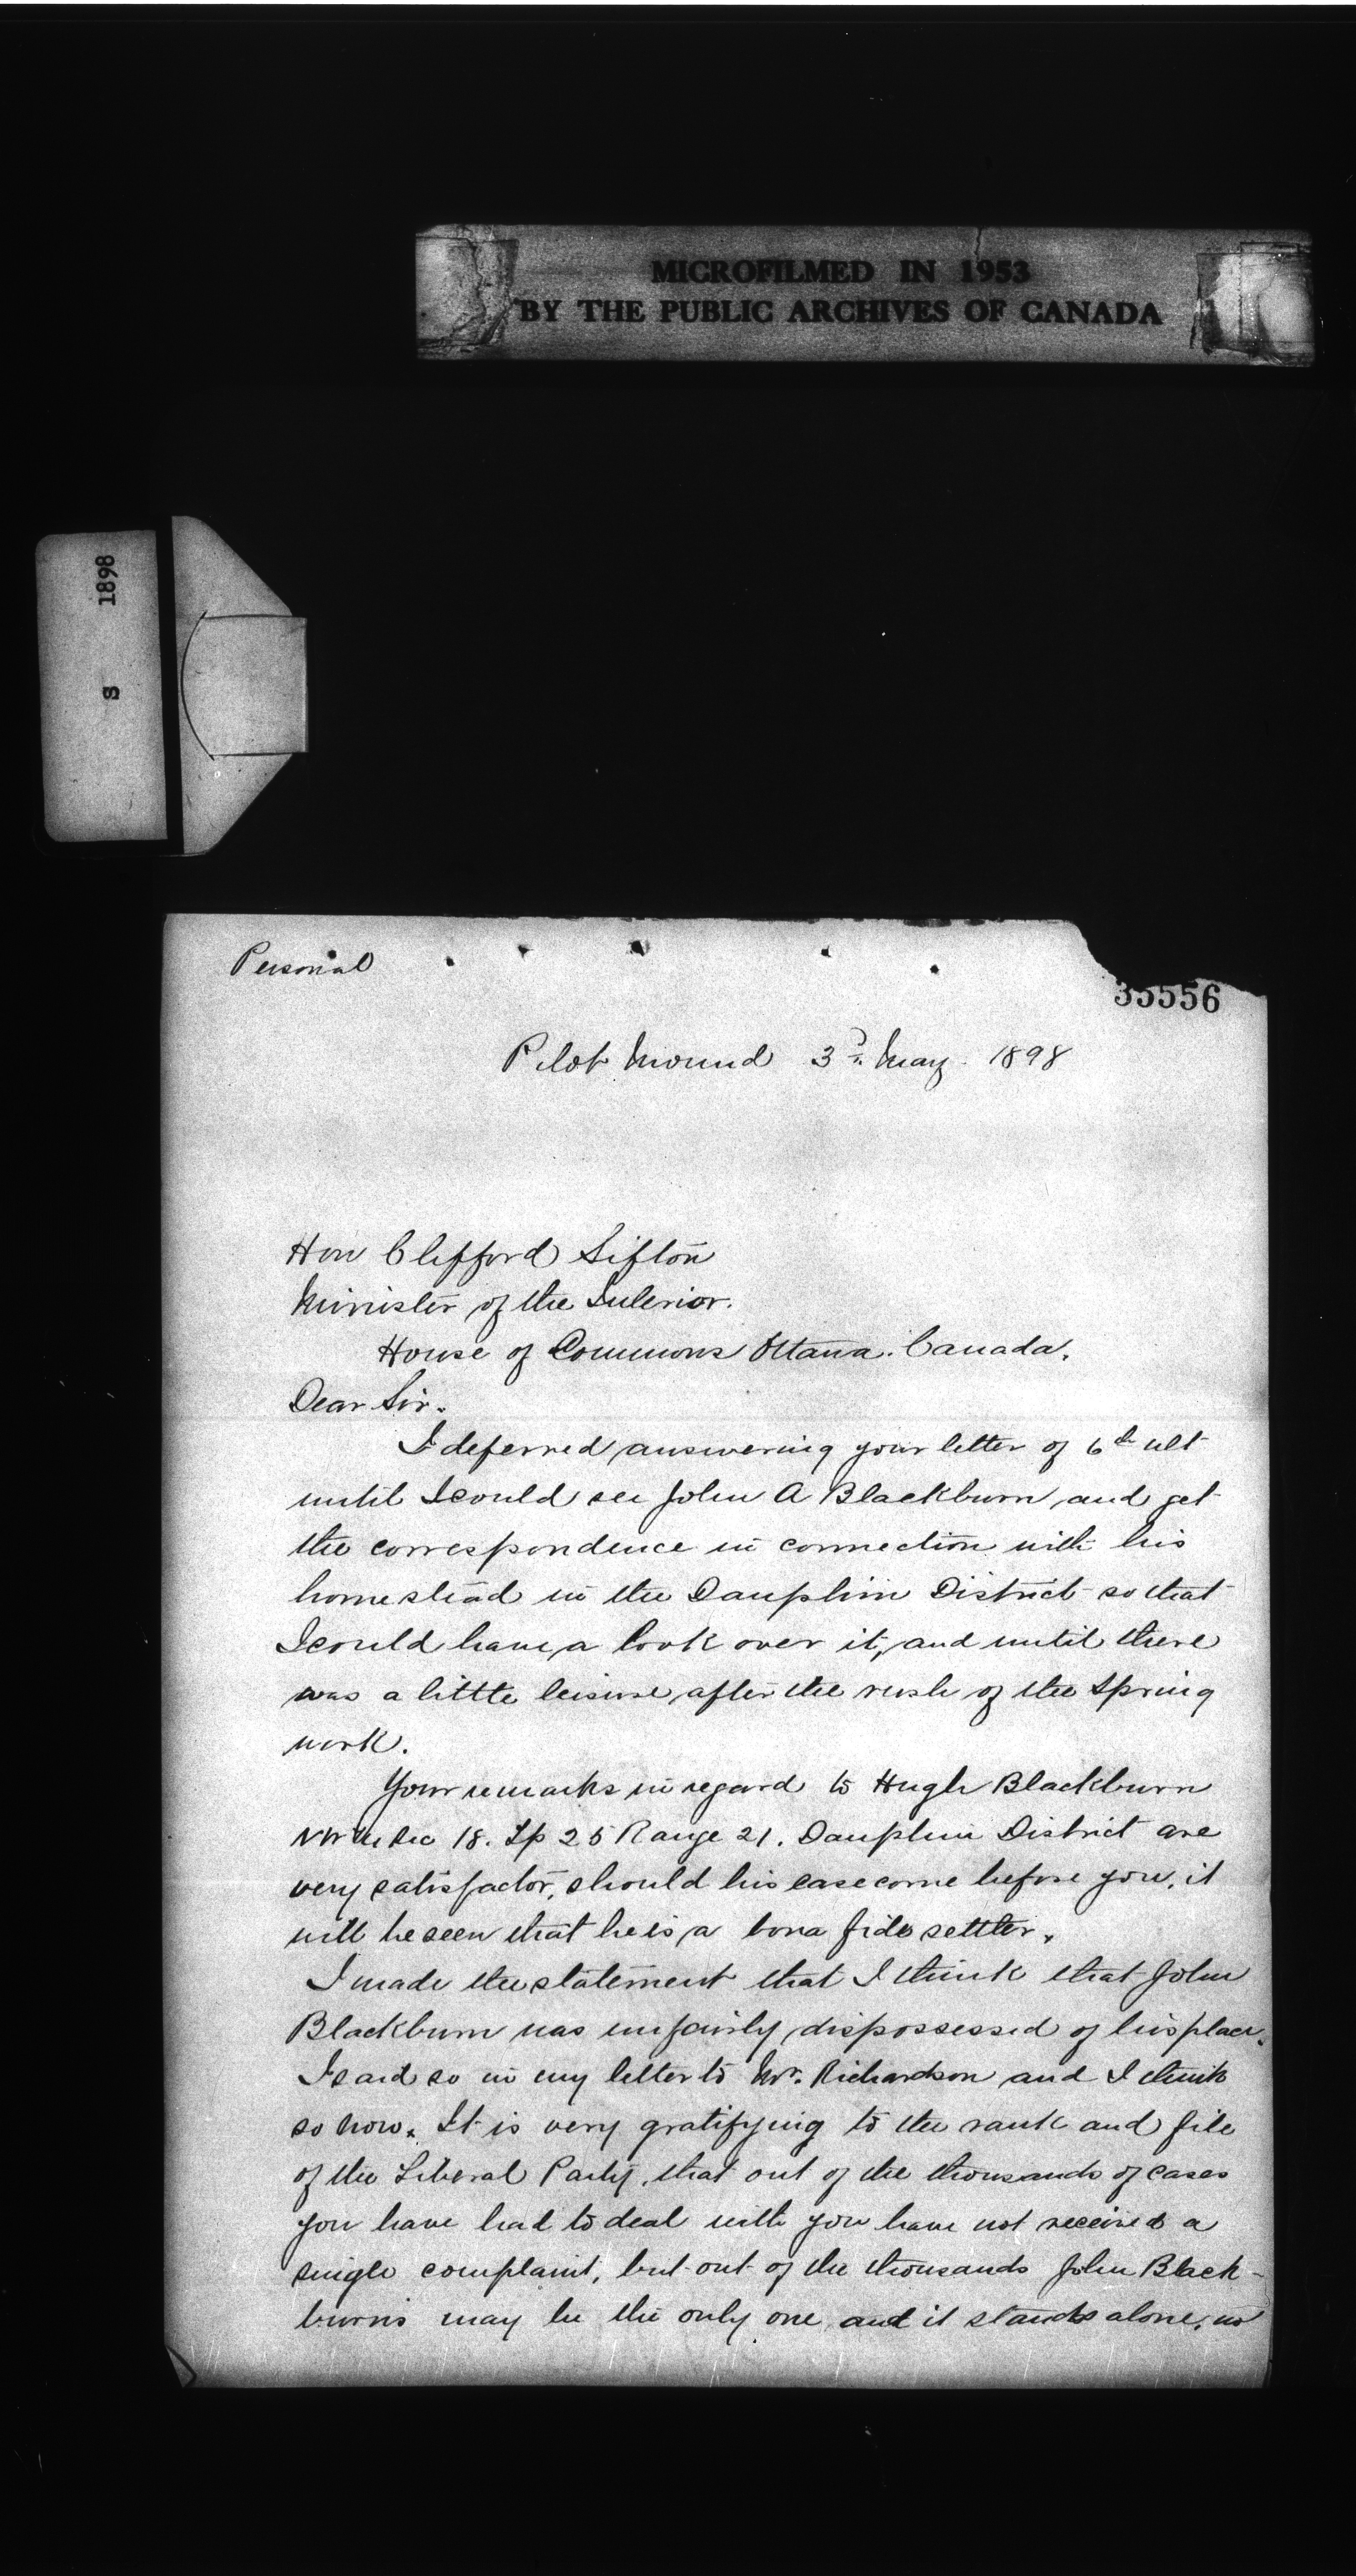 MICROFILMED IN 1953
BY THE PUBLIC ARCHIVES OF CANADA
S 1898
Personal
35556
Pilot Mound 3rd May 1898
Hon Clifford Sifton
Minister of the Interior.
House of Commons Ottawa. Canada.
Dear Sir.
I deferred answering your letter of 6th ult
until I could see John A Blackburn and get
the correspondence in connection with his
homestead in the Dauphin District so that
I could have a look over it, and until there
was a little leisure after the rush of the Spring
work.
Your remarks in regard to Hugh Blackburn
NW 1/4 Sec 18. Tp 25 Range 21. Dauphin District are
very satisfactor, should his case come before you, it
will be seen that he is a bona fide settler.
I made the statement that I think that John
Blackburn was unfairly dispossessed of his place.
I said so in my letter to Mr. Richardson and I think
so now. It is very gratifying to the rank and file
of the Liberal Party, that out of the thousands of cases
you have had to deal with you have not received a
single complaint, but out of the thousands John Black-
burns may be the only one and it stands alone, no